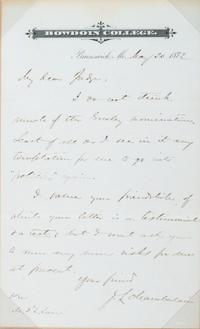 BOWDOIN COLLEGE.
Brunswick, Me. May 20 1882
My dear Judge,
I do not think
much of the nomination,
least of all do I see in it any
temptation for me to go into
"politics" again.
I value your friendship, of
which your letter is a testimonial
& a test; but I must ask you
to run any more risks for me
at present.
Your friend
J L Chamberlain